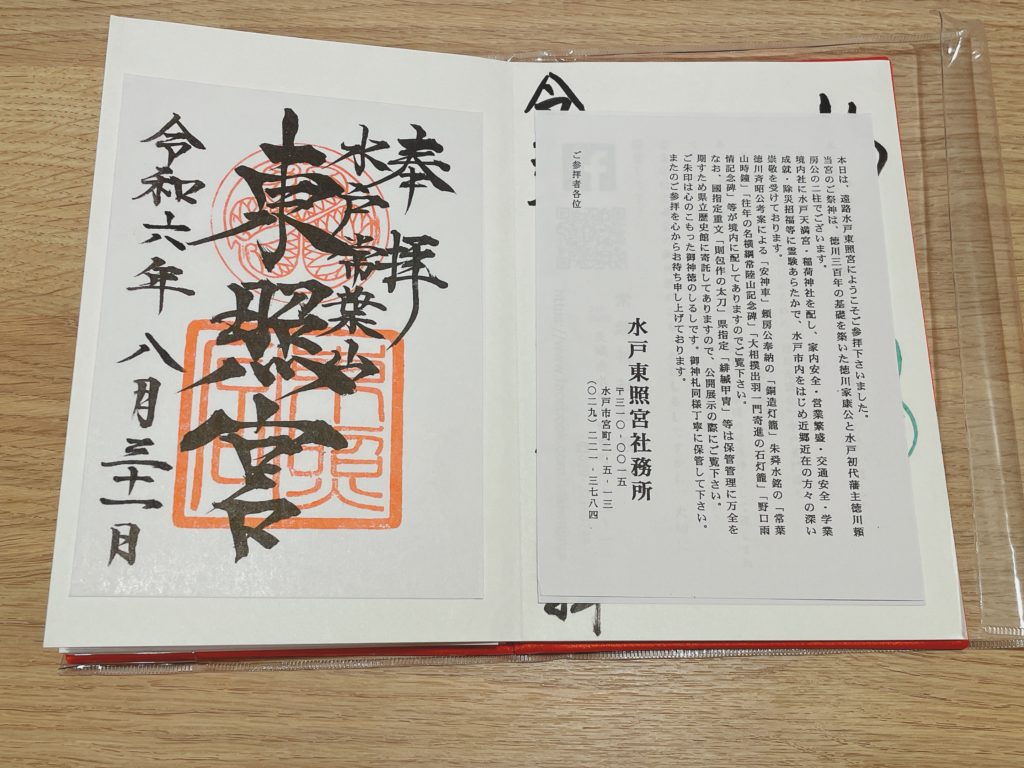 本日は、遠路水戸東照宮にようこそご参拝下さいました。
当宮のご祭神は、徳川三百年の基礎を築いた徳川家康公と水戸初代藩主徳川頼
房公の二柱でございます。
境内社に水戸天満宮・稲荷神社を配し、家内安全・営業繁盛・交通安全・学業
成就・除災招福等に霊験あらたかで、水戸市内をはじめ近郷近在の方々の深い
崇敬を受けております。
徳川斉昭公考案による「安神車」頼房公奉納の「銅造灯籠」朱舜水銘の「常葉
山時鐘」「往年の名横綱常陸山記念碑」「大相撲出羽一門寄進の石灯籠」「野口雨
情記念碑」等が境内に配してありますのでご覧下さい。
なお、國指定重文「則包作の太刀」県指定「緋縅甲冑」等は保管管理に万全を
期すため県立歴史館に寄託してありますので、公開展示の際にご覧下さい。
ご朱印は心のこもった御神徳のしるしです。御神札同様丁寧に保管して下さい。
またのご参拝を心からお待ち申し上げております。
水戸東照宮社務所
〒三一〇-〇〇一五
水戸市宮町二-五-一三
(〇二九)二二一-三七八四
ご参拝者各位
令
奉拝
水戸常葉山
東照宮
令和六年 八月三十一日